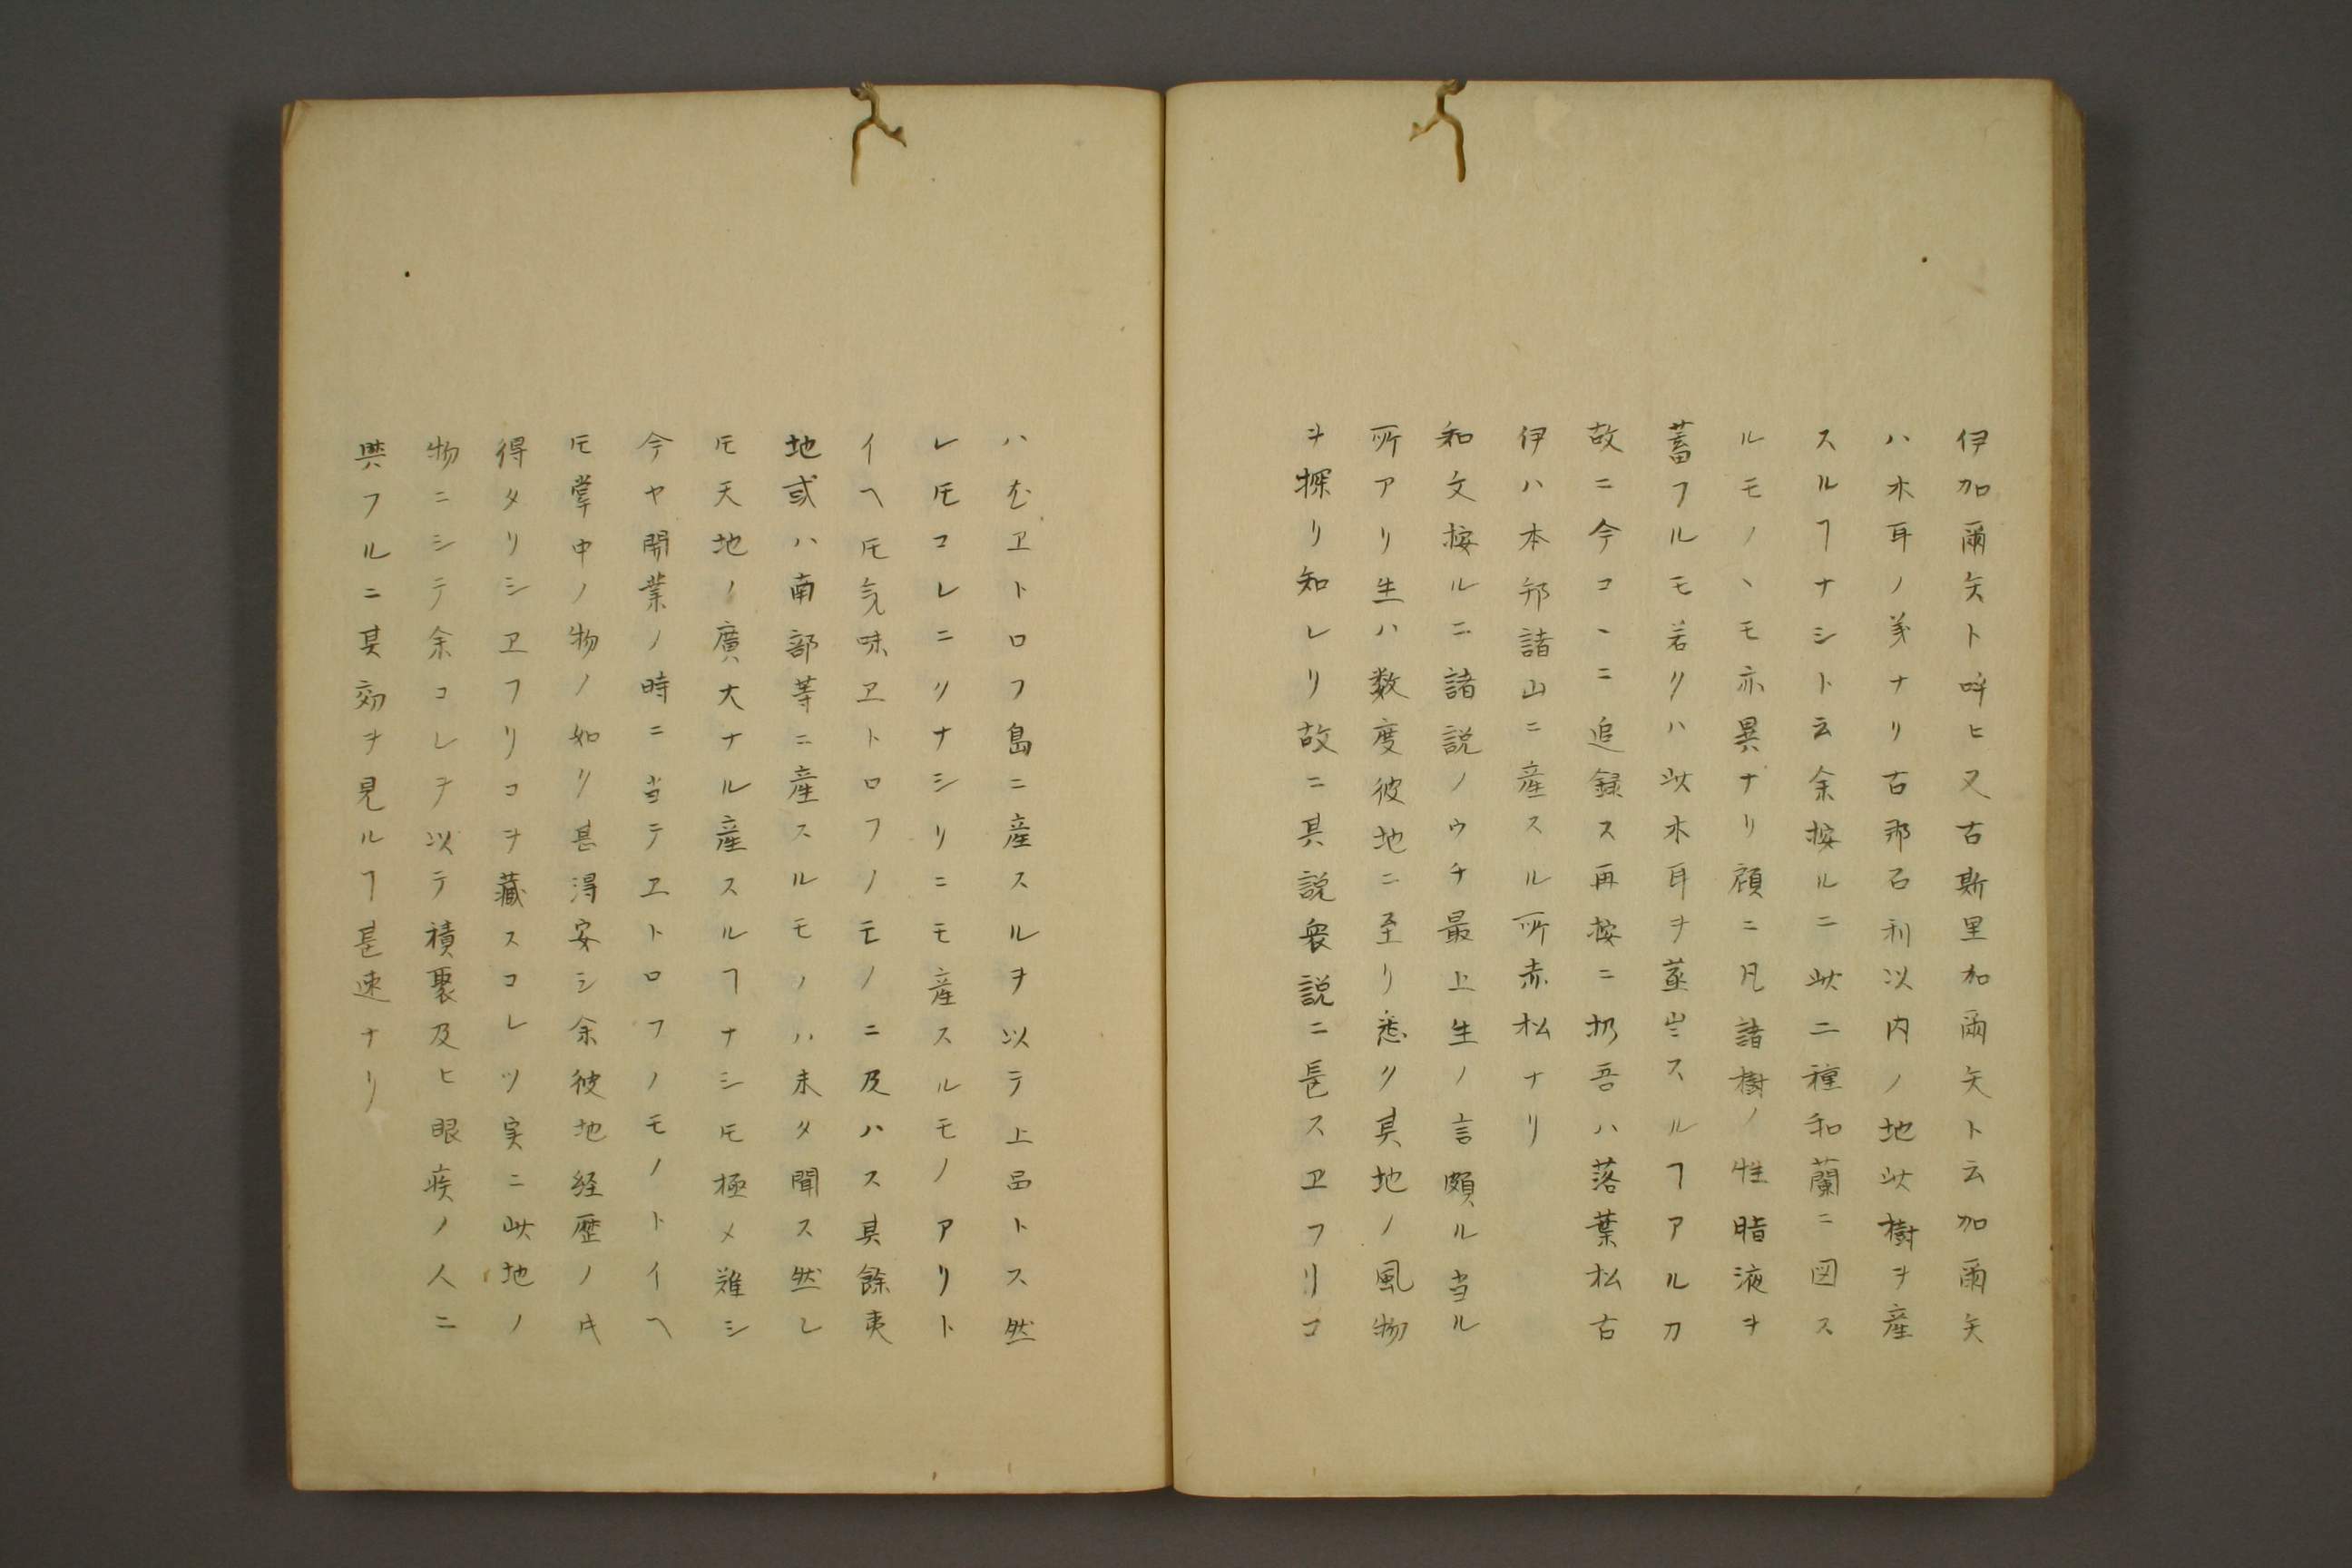 伊加爾矢ト呼ヒ又古斯里加爾矢ト云加爾矢
ハ木耳ノ義ナリ古那石利以内ノ地此樹ヲ産
スルヿナシト云余按ルニ此二種和蘭ニ図ス
ルモノヽモ亦異ナリ顧ニ凡諸樹ノ性脂液ヲ
蓄フルモ若クハ此木耳ヲ蒸出スルヿアルカ
故ニ今コヽニ追録ス再按ニ扨吾ハ落葉松古
伊ハ本邦諸山ニ産スル所赤松ナリ
和文按ルニ諸説ノウチ最上生ノ言頗ル当ル
所アリ生ハ数度彼地ニ至リ悉ク其地ノ風物
ヲ探リ知レリ故ニ其説衆説ニ長スヱフリコ
ハヱトロフ島ニ産スルヲ以テ上品トス然
レ𪜈コレニクナシリニモ産スルモノアリト
イヘ𪜈気味ヱトロフノモノニ及ハス其餘夷
地或ハ南部等ニ産スルモノハ未タ聞ス然レ
𪜈天地ノ廣大ナル産スルヿナシ𪜈極メ難シ
今ヤ開業ノ時ニ当テヱトロフノモノトイヘ
𪜈掌中ノ物ノ如ク甚得安シ余彼地経歴ノ𪜈
得タリシヱフリコヲ藏スコレツ実ニ此地ノ
物ニシテ余コレヲ以テ積聚及ヒ眼疾ノ人ニ
與フルニ其効ヲ見ルヿ甚速ナリ